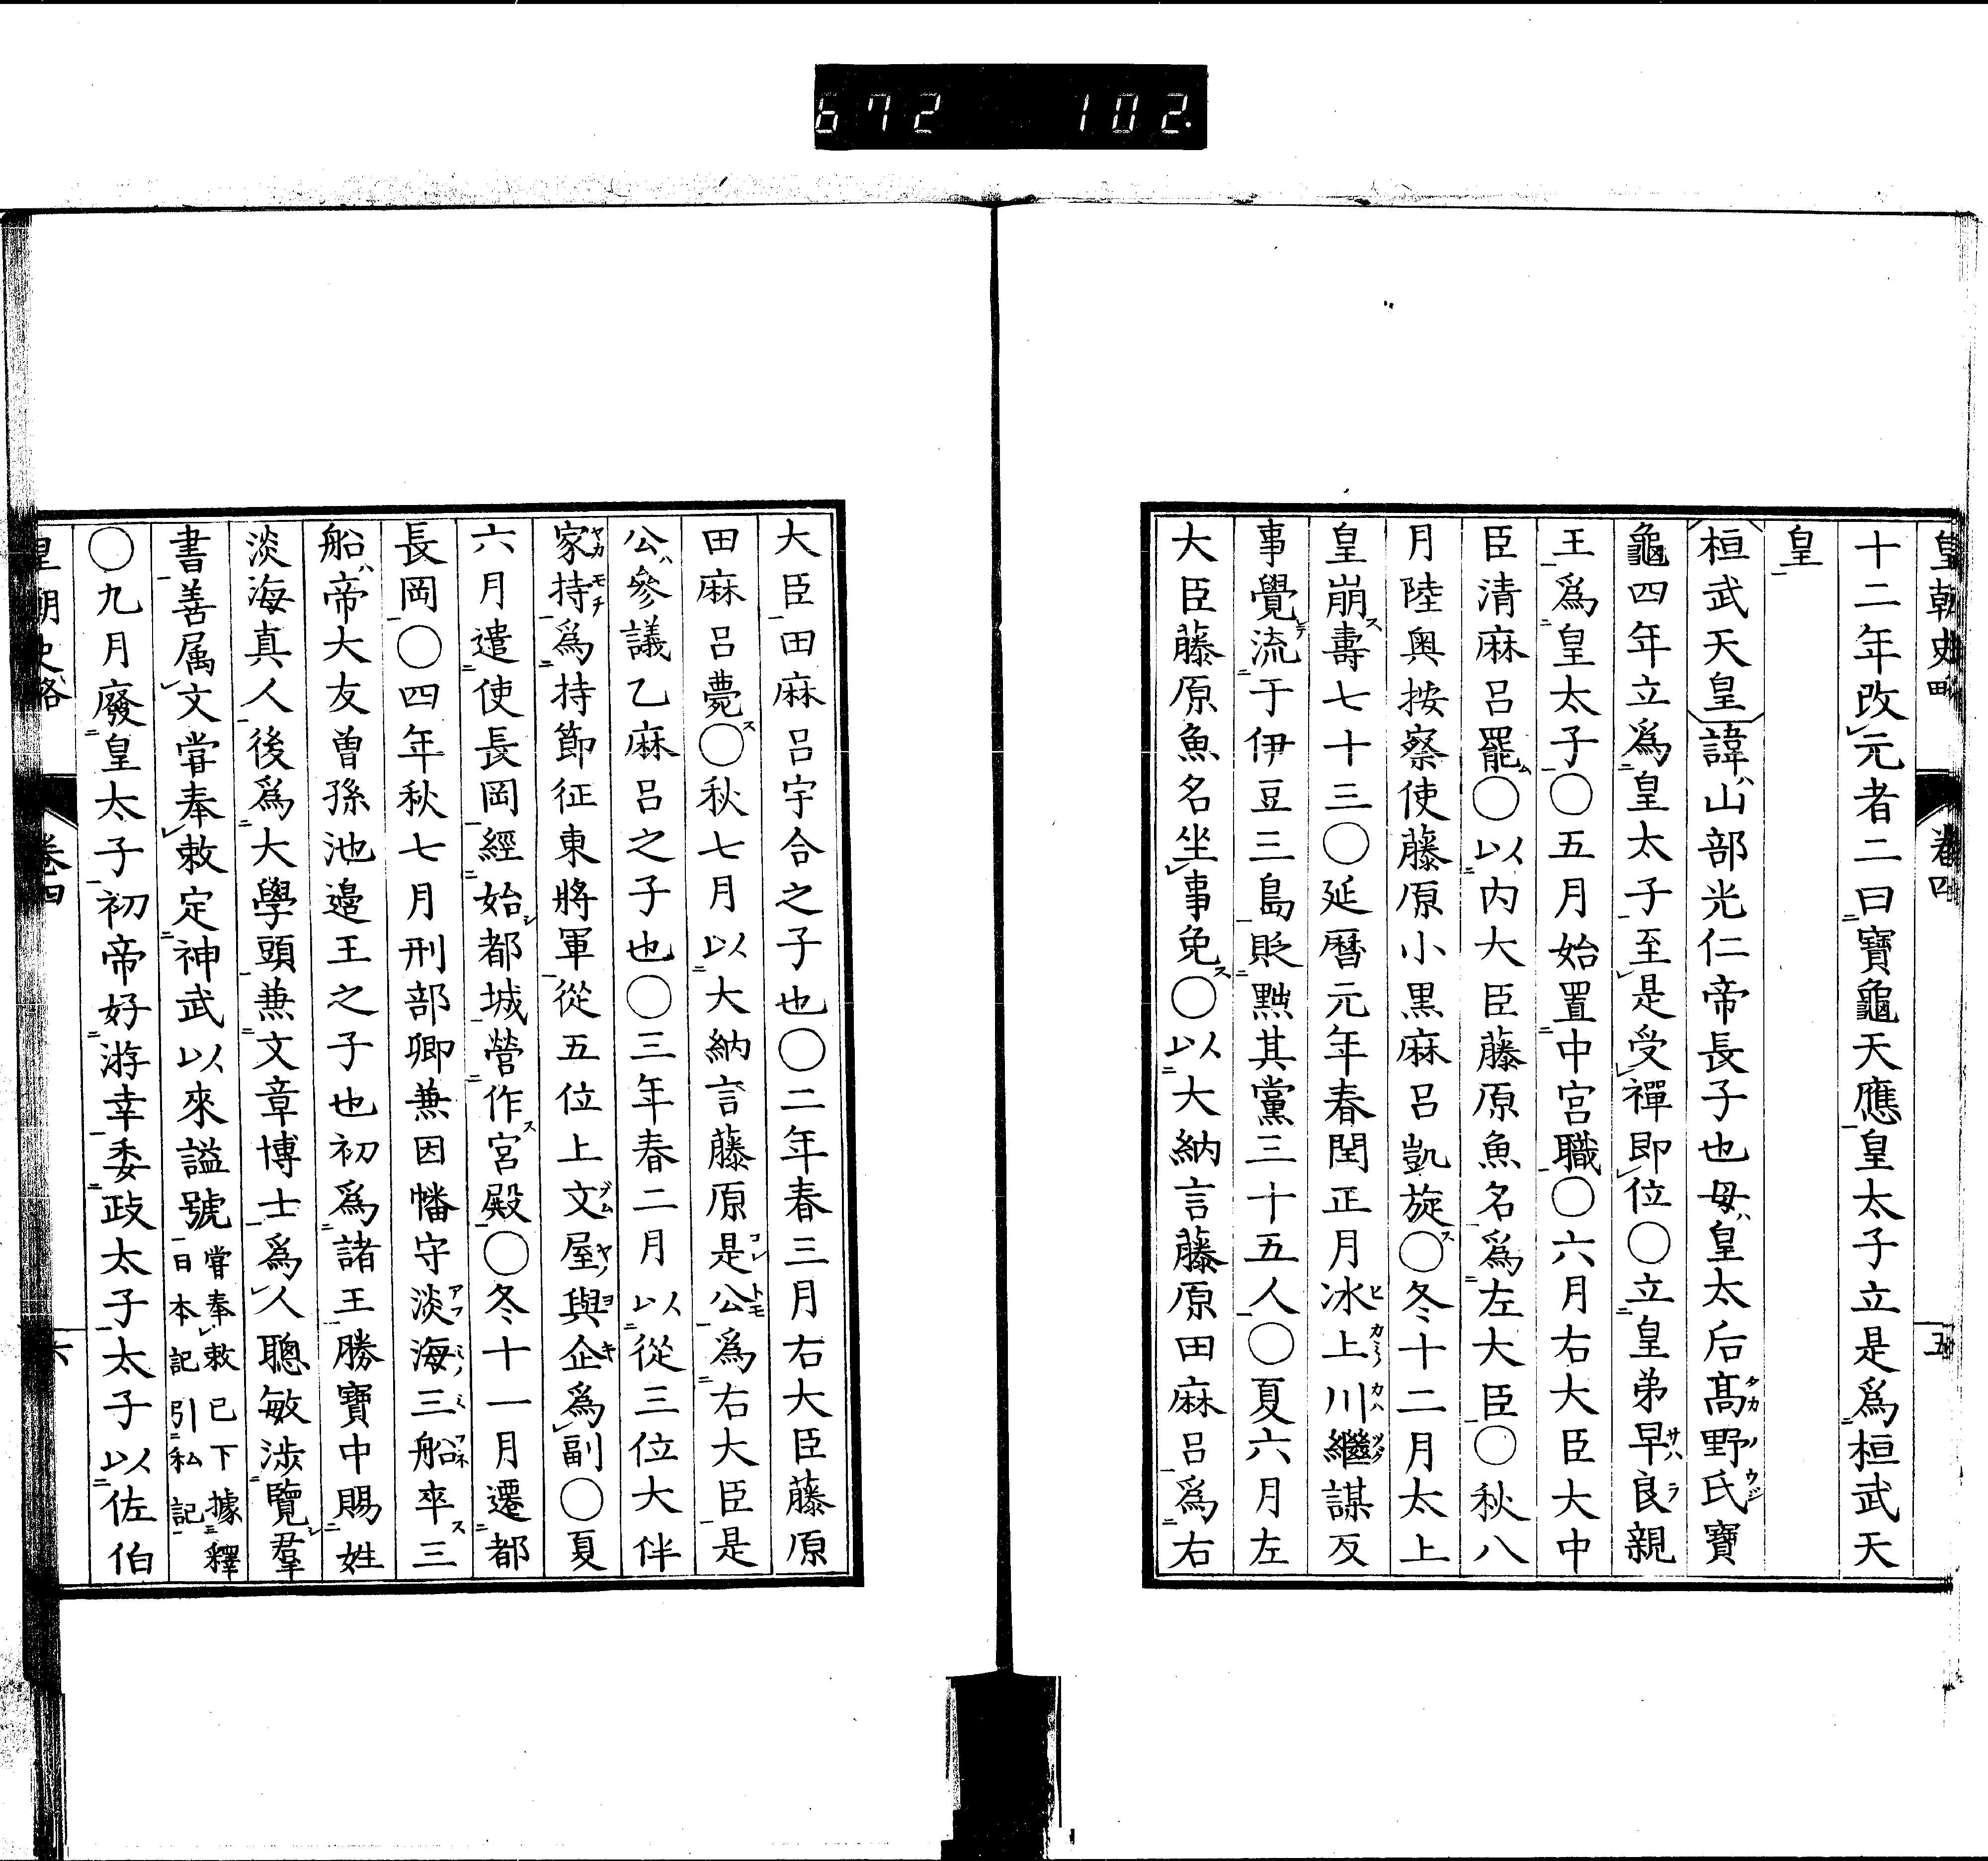 672 102.
皇朝史畧 卷四 五
十二年改元者二曰寶龜天應皇太子立是爲桓武天
皇
桓武天皇諱山部光仁帝長子也母皇太后髙野氏寶
龜四年立爲皇太子至是受禪即位○立皇弟早良親
王爲皇太子○五月始置中宮職○六月右大臣大中
臣清麻呂罷○以内大臣藤原魚名爲左大臣○秋八
月陸奥按察使藤原小黒麻呂凱旋○冬十二月太上
皇崩壽七十三○延曆元年春閏正月冰上川繼謀反
事覺流于伊豆三島貶黜其黨三十五人○夏六月左
大臣藤原魚名坐事免○以大納言藤原田麻呂爲右
大臣田麻呂宇合之子也○二年春三月右大臣藤原
田麻呂薨○秋七月以大納言藤原是公爲右大臣是
公參議乙麻呂之子也○三年春二月以從三位大伴
家持爲持節征東將軍從五位上文屋與企爲副○夏
六月遣使長岡經始都城營作宮殿○冬十一月遷都
長岡○四年秋七月刑部卿兼因幡守淡海三船卒三
船帝大友曾孫池邉王之子也初爲諸王勝寶中賜姓
淡海真人後爲大學頭兼文章博士爲人聰敏渉覽羣
書善属文甞奉敕定神武以來謚號甞奉敕已下據釋日本記引私記
○九月廢皇太子初帝好游幸委政太子太子以佐伯
皇朝史畧 卷四 六